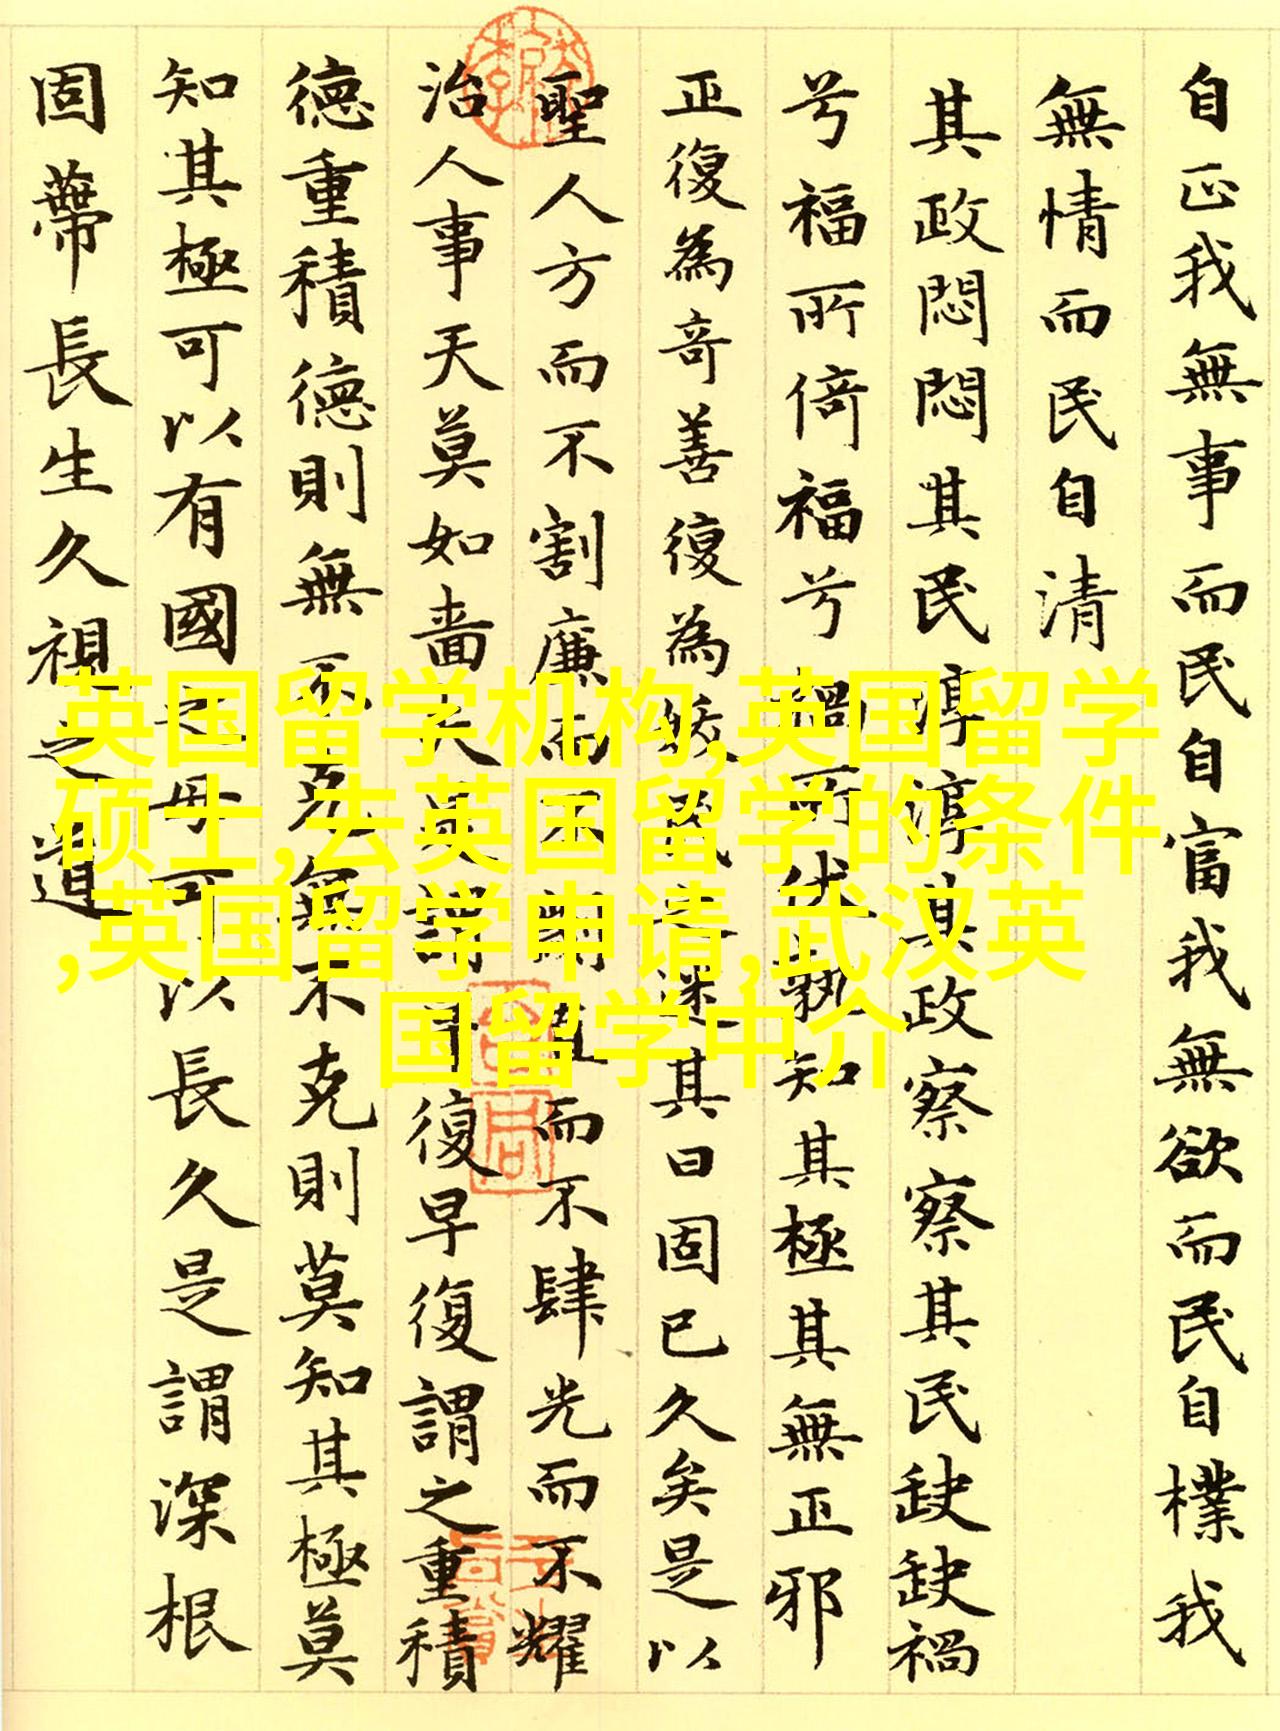 自正我無事而民自富我無欲而民自樸我
無情而民自清
其政悶悶其民淳淳其政察察其民缺缺禍
兮福所倚福兮禍所伏孰知其極其無正邪
正復為奇善復為妖民之迷其日固已久矣是以
聖人方而不割廉而不劌直而不肆光而不耀
治人事天莫如嗇夫是謂早復早復謂之重積
德重積德則無不克無不克則莫知其極莫
知其極可以有國之母可以長久是謂深根
固蔕長生久視之道
英国留学机构,英国留学
硕士,去英国留学的条件
,英国留学申请,武汉英
国留学中介